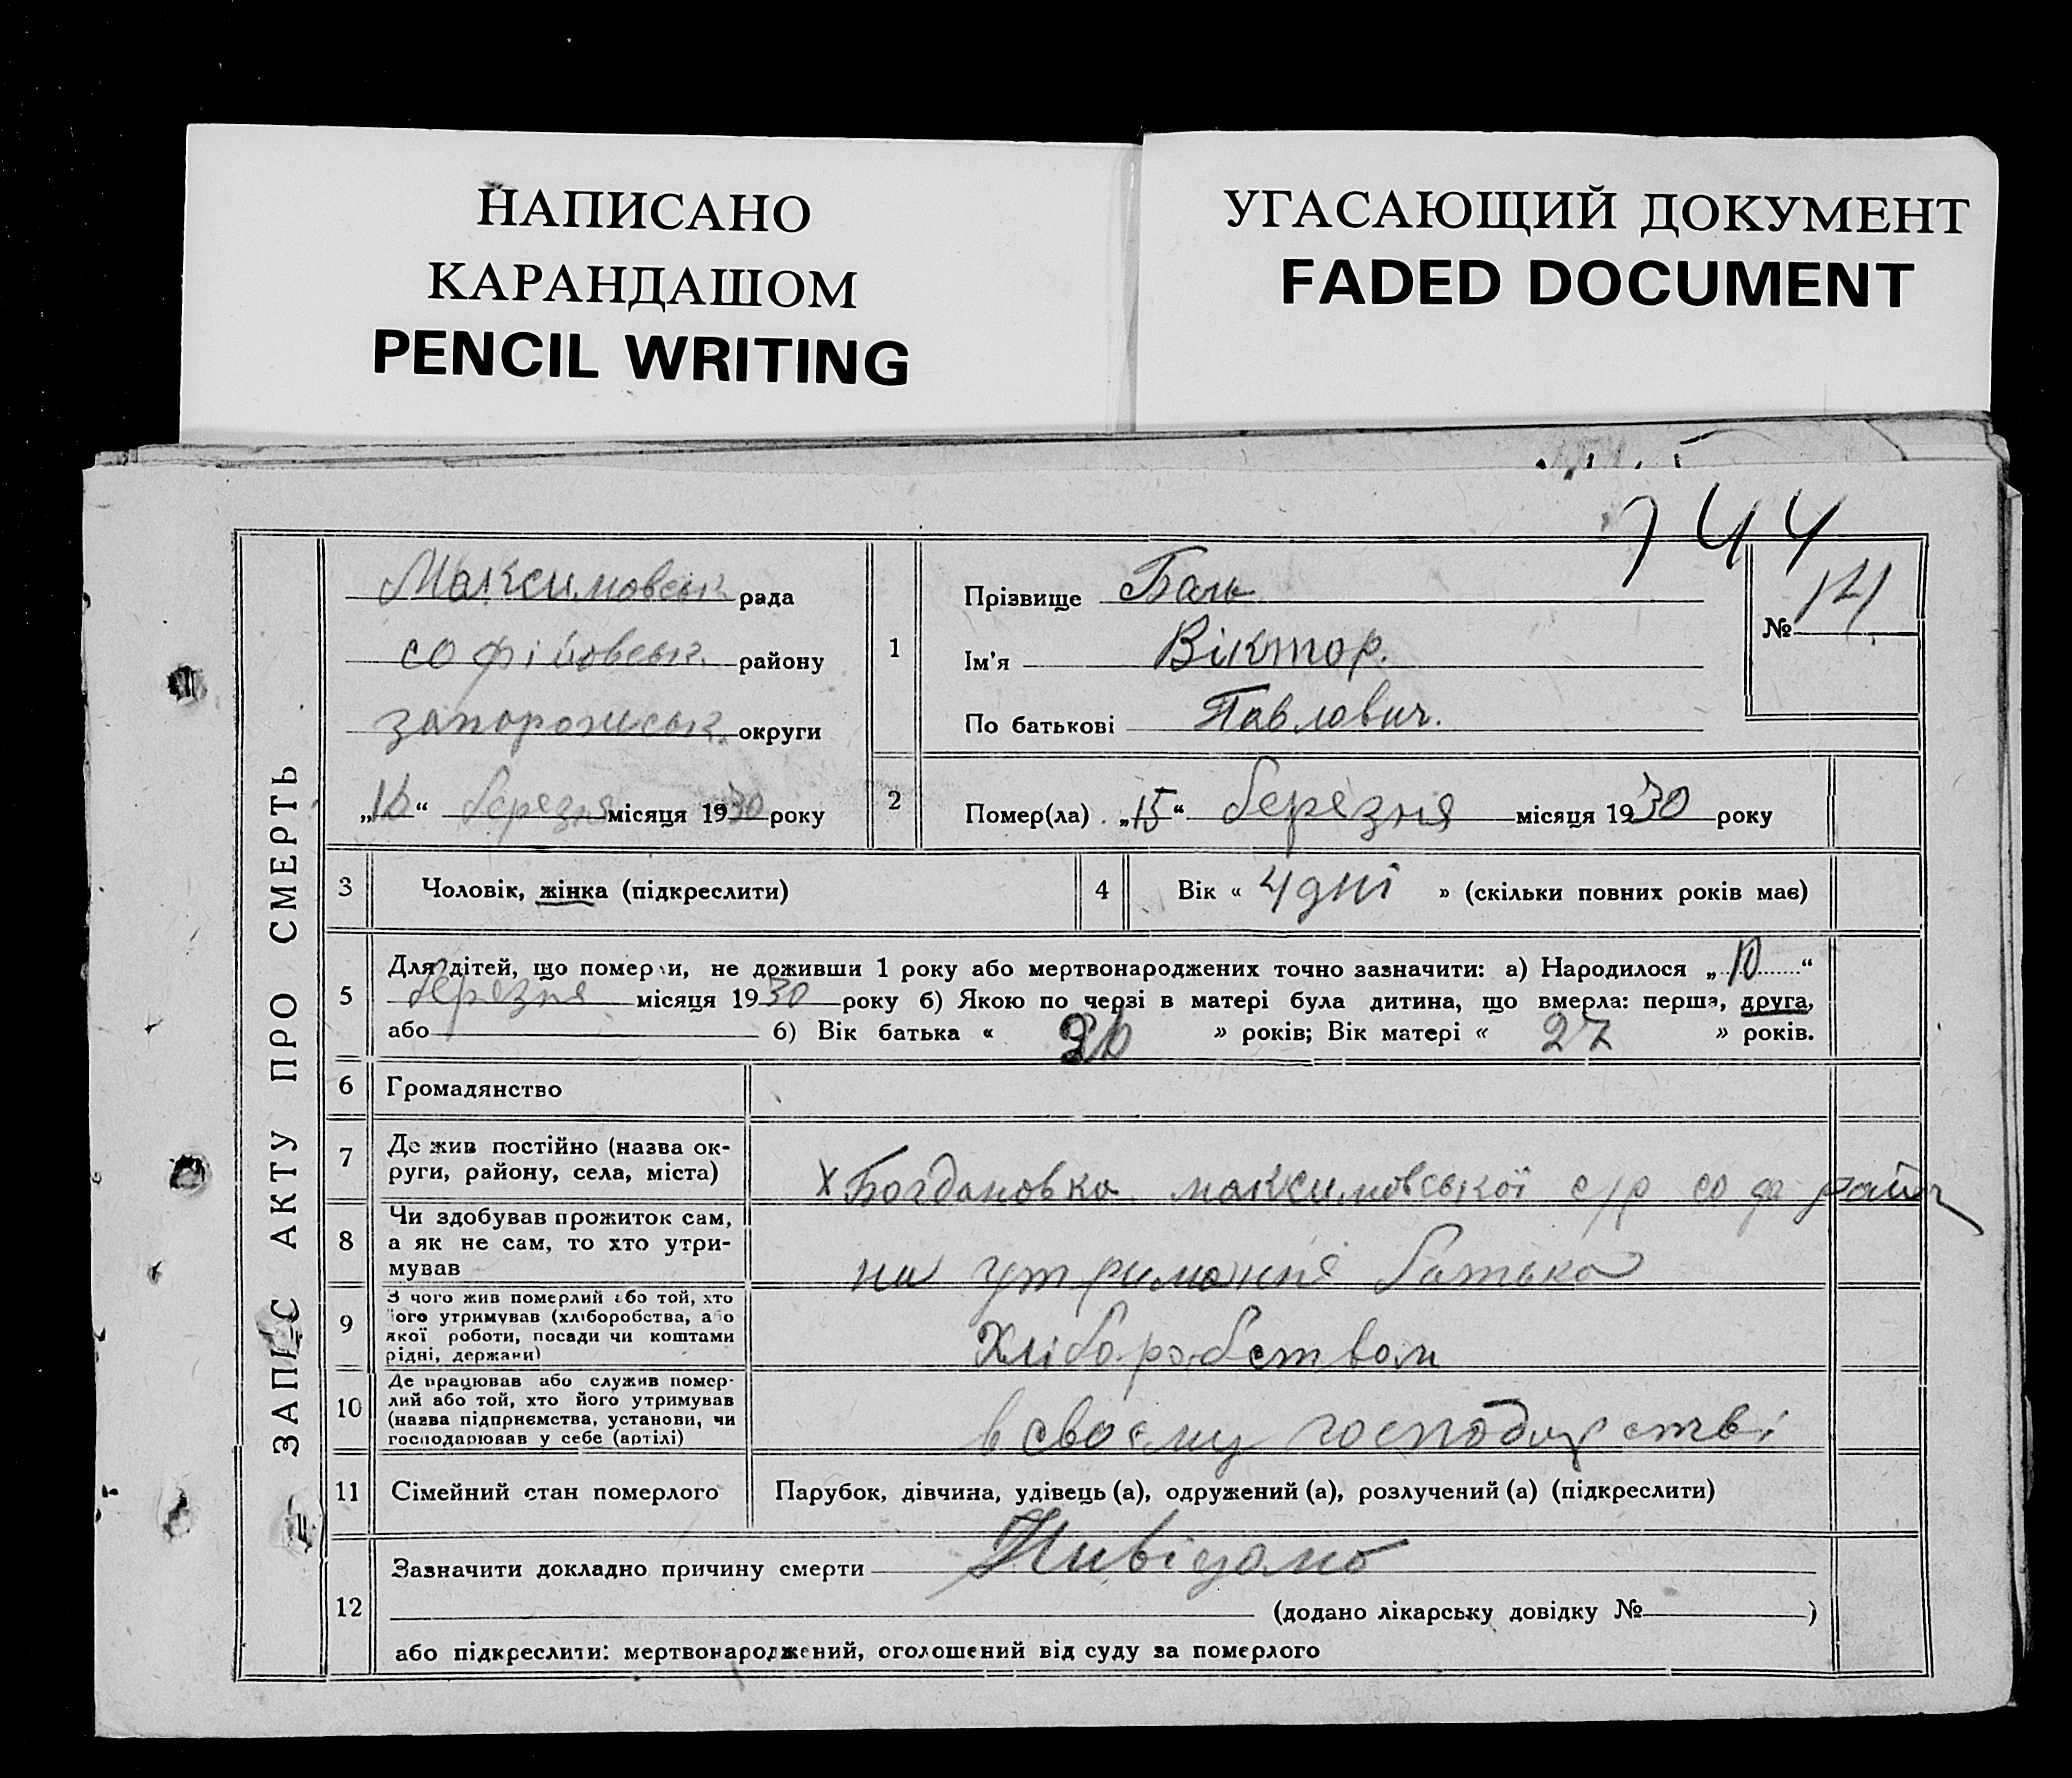 НАПИСАНО
КАРАНДАШОМ
PENCIL WRITING
УГАСАЮЩИЙ ДОКУМЕНТ
FADED DOCUMENT
744
ЗАПИС АКТУ ПРО СМЕРТЬ
Максимовськ рада
софійовськ. району
запорожськ. округи
„ “ березня місяця 1930 року
1
Прізвище Баль
Ім'я Віктор.
По батькові Павлович.
№ 14
2 Помер(ла) „15“ березня місяця 1930 року
3 Чоловік, жінка (підкреслити)
4 Вік « 4 дні » (скільки повних років має)
5 Для дітей, що померли, не доживши 1 року або мертвонароджених точно зазначити: а) Народилося „10“
березня місяця 1930 року б) Якою по черзі в матері була дитина, що вмерла: перша, друга,
або б) Вік батька « » років; Вік матері « 27 » років.
6 Громадянство
7 Де жив постійно (назва ок-
руги, району, села, міста)
х Богдановка максимовської с/р
8 Чи здобував прожиток сам,
а як не сам, то хто утри-
мував
на утриманні батька
9 З чого жив померлий або той, хто
його утримував (хліборобства, або
якої роботи, посади чи коштами
рідні, держави)
Хліборобством
10 Де працював або служив помер-
лий або той, хто його утримував
(назва підприємства, установи, чи
господарював у себе (артілі)
в своєму господарстві
11 Сімейний стан померлого
Парубок, дівчина, удівець (а), одружений (а), розлучений (а) (підкреслити)
12 Зазначити докладно причину смерти Нивідомо
(додано лікарську довідку № )
або підкреслити: мертвонароджений, оголошений від суду за померлого